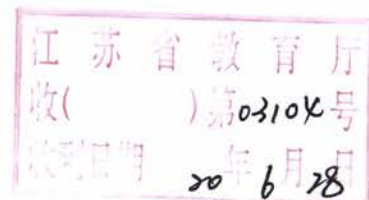 江苏省教育厅
收( )第03104号
收到日期 20 年 6 月 28 日